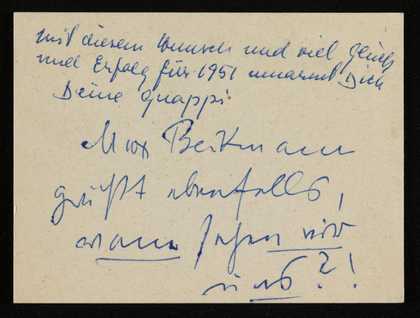 mit diesem Wunsch und viel Glück
und Erfolg für 1951 umarmt Dich
Deine Quappi
Max Beckmann
grüßt ebenfalls,
wann sehen wir
uns?!